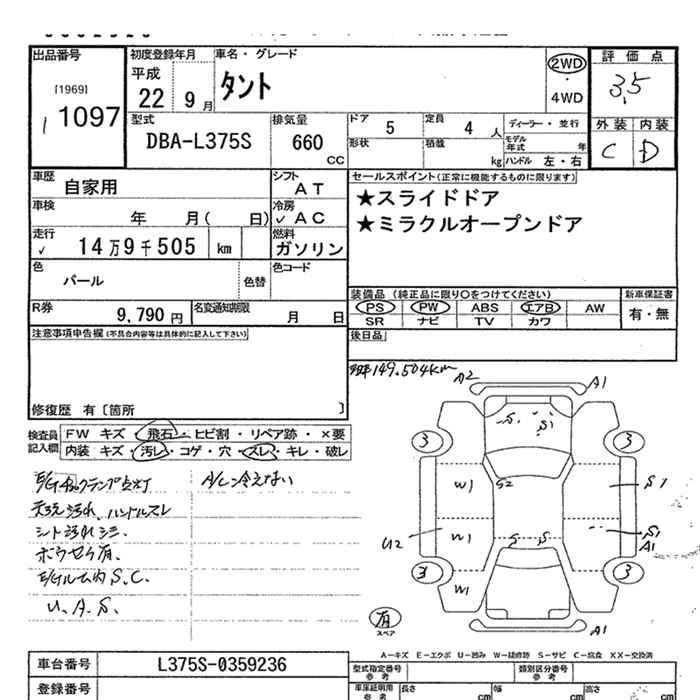 出品番号 初度登録年月 車名・グレード 2WD 評価点
[1969] 平成 タント ・ 3.5
1 1097 22 9月 4WD
型式 排気量 ドア 5 定員 4人 ディーラー・並行 外装 内装
DBA-L375S 660 CC 形状 積載 kg モデル年式 年 ハンドル 左・右 C D
車歴 自家用 シフト AT セールスポイント(正常に機能するものに限ります)
車検 年 月( 日) 冷房 ✓AC ★スライドドア
走行 ✓ 14万9千505 km 燃料 ガソリン ★ミラクルオープンドア
色 パール 色替 色コード
装備品 (純正品に限り○をつけてください) 新車保証書
R券 9,790円 名変通知期限 月 日 PS PW ABS エアB AW 有・無
SR ナビ TV カワ
注意事項申告欄(不具合内容等は具体的に記入して下さい) 後日品
149.504km
修復歴 有[箇所 ]
検査員記入欄 FW キズ・飛石・ヒビ割・リペア跡・×要
内装 キズ・汚レ・コゲ・穴・スレ・キレ・破レ
ランプ点灯 A/C冷えない
天張汚れ、ハンドルスレ
シート汚れシミ.
ボウセケ有.
ル内S.C.
U.A.S.
A2 A1
S. S1
3 3
W1 S2 S1
U2 W1 S S S1 A1
3 3
W1
有 スペア A1
A-キズ E-エクボ U-凹み W-補修跡 S-サビ C-腐食 XX-交換済
車台番号 L375S-0359236 型式指定番号 参考 類別区分番号 参考
登録番号 車庫証明用 参考 長さ cm 幅 cm 高さ cm